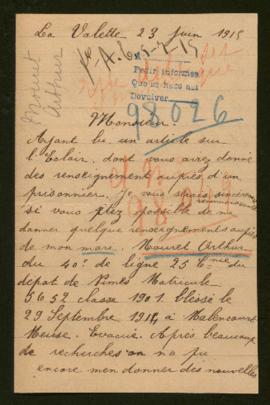 La Valette 23 Juin 1915
Mouret
Arthur
Pedir informes
Devolver
98026
Monsieur.
Ayant lu un article sur
l'Eclair. dont vous avez donné
des renseignement auprès d'un
prisonnier. je vous
si vous plez possible de me
donner quelque renseignements auprès
de mon mare. Mouret Arthur
du 40e de ligne 25 Cnie du
dépot de Nimes Matricule
5652 classe 1901 blessé le
29 Septembre 1914 à Malencourt
Meuse. Evacué. Après beaucoup
de recherches on na pu
encore men donner des nouvelles